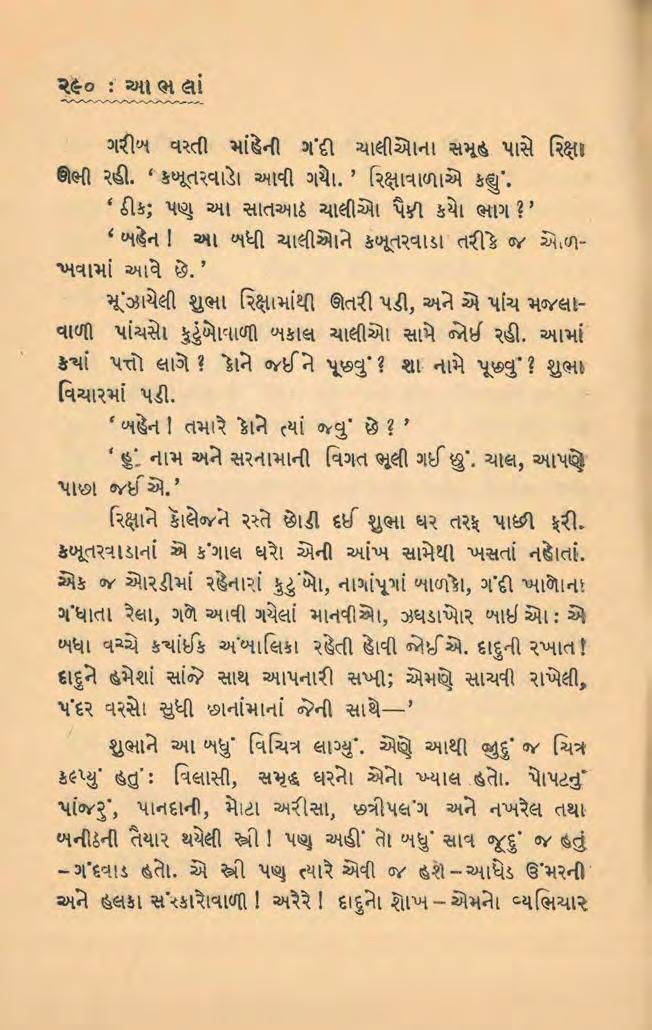 ૨૯૦ : આભલાં
ગરીબ વસ્તી માંહેની ગંદી ચાલીઓના સમૂહ પાસે રિક્ષા
ઊભી રહી. ‘ કબૂતરવાડો આવી ગયો. ’ રિક્ષાવાળાએ કહ્યું.
‘ ઠીક; પણ આ સાતઆઠ ચાલીઓ પૈકી કયો ભાગ ?’
‘ બહેન ! આ બધી ચાલીઓને કબૂતરવાડા તરીકે જ ઓળ-
ખવામાં આવે છે. ’
મૂંઝાયેલી શુભા રિક્ષામાંથી ઊતરી પડી, અને એ પાંચ મજલા-
વાળી પાંચસો કુટુંબોવાળી બકાલ ચાલીઓ સામે જોઈ રહી. આમાં
ક્યાં પત્તો લાગે ? કોને જઈને પૂછવું ? શા નામે પૂછવું ? શુભા
વિચારમાં પડી.
‘ બહેન ! તમારે કોને ત્યાં જવું છે ? ’
‘ હું નામ અને સરનામાની વિગત ભૂલી ગઈ છું. ચાલ, આપણે
પાછા જઈએ. ’
રિક્ષાને કૉલેજને રસ્તે છોડી દઈ શુભા ઘર તરફ પાછી ફરી.
કબૂતરવાડાનાં એ કંગાલ ઘરો એની આંખ સામેથી ખસતાં નહોતાં.
એક જ ઓરડીમાં રહેનારાં કુટુંબો, નાગાંપૂગાં બાળકો, ગંદી ખાળોના
ગંધાતા રેલા, ગળે આવી ગયેલાં માનવીઓ, ઝઘડાખોર બાઈઓ : એ
બધા વચ્ચે ક્યાંઈક અંબાલિકા રહેતી હોવી જોઈએ. દાદુની રખાત !
દાદુને હમેશાં સાંજે સાથ આપનારી સખી; એમણે સાચવી રાખેલી,
પંદર વરસો સુધી છાનાંમાનાં જેની સાથે—’
શુભાને આ બધું વિચિત્ર લાગ્યું. એણે આથી જુદું જ ચિત્ર
કલ્પ્યું હતું : વિલાસી, સમૃદ્ધ ઘરનો એનો ખ્યાલ હતો. પોપટનું
પાંજરું, પાનદાની, મોટા અરીસા, છત્રીપલંગ અને નખરેલ તથા
બનીઠની તૈયાર થયેલી સ્ત્રી ! પણ અહીં તો બધું સાવ જૂદું જ હતું
– ગંદવાડ હતો. એ સ્ત્રી પણ ત્યારે એવી જ હશે – આધેડ ઉંમરની
અને હલકા સંસ્કારોવાળી ! અરેરે ! દાદુનો શોખ – એમનો વ્યભિચાર